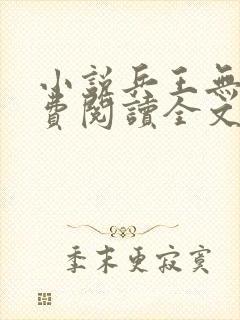 小説兵王無
費閱讀全文
季末更寂寞